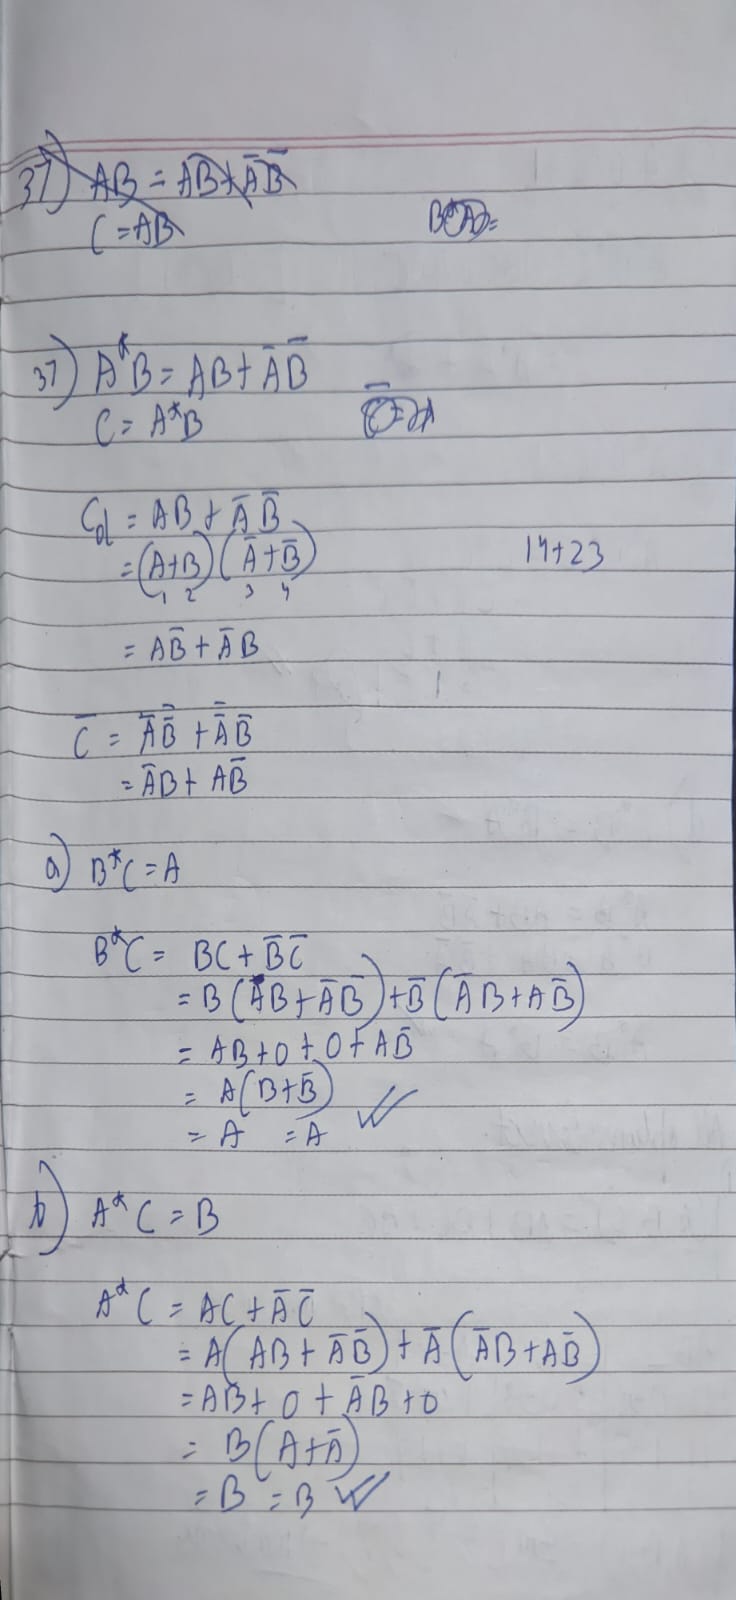 37) AB = AB + A̅ B̅
C = AB
37) A*B = AB + A̅ B̅
C = A*B
C_d = AB + A̅ B̅
= (A+B) (A̅ + B̅)
1 2 3 4
14+23
= AB̅ + A̅B
C̅ = A̅ B̿ + A̿ B̅
= A̅B + AB̅
a) B*C = A
B*C = BC + B̅ C̅
= B (AB + A̅ B̅) + B̅ (A̅B + AB̅)
= AB + 0 + 0 + AB̅
= A(B+B̅)
= A = A ✓
b) A*C = B
A*C = AC + A̅ C̅
= A(AB + A̅B̅) + A̅ (A̅B + AB̅)
= AB + 0 + A̅B + 0
= B(A+A̅)
= B = B ✓